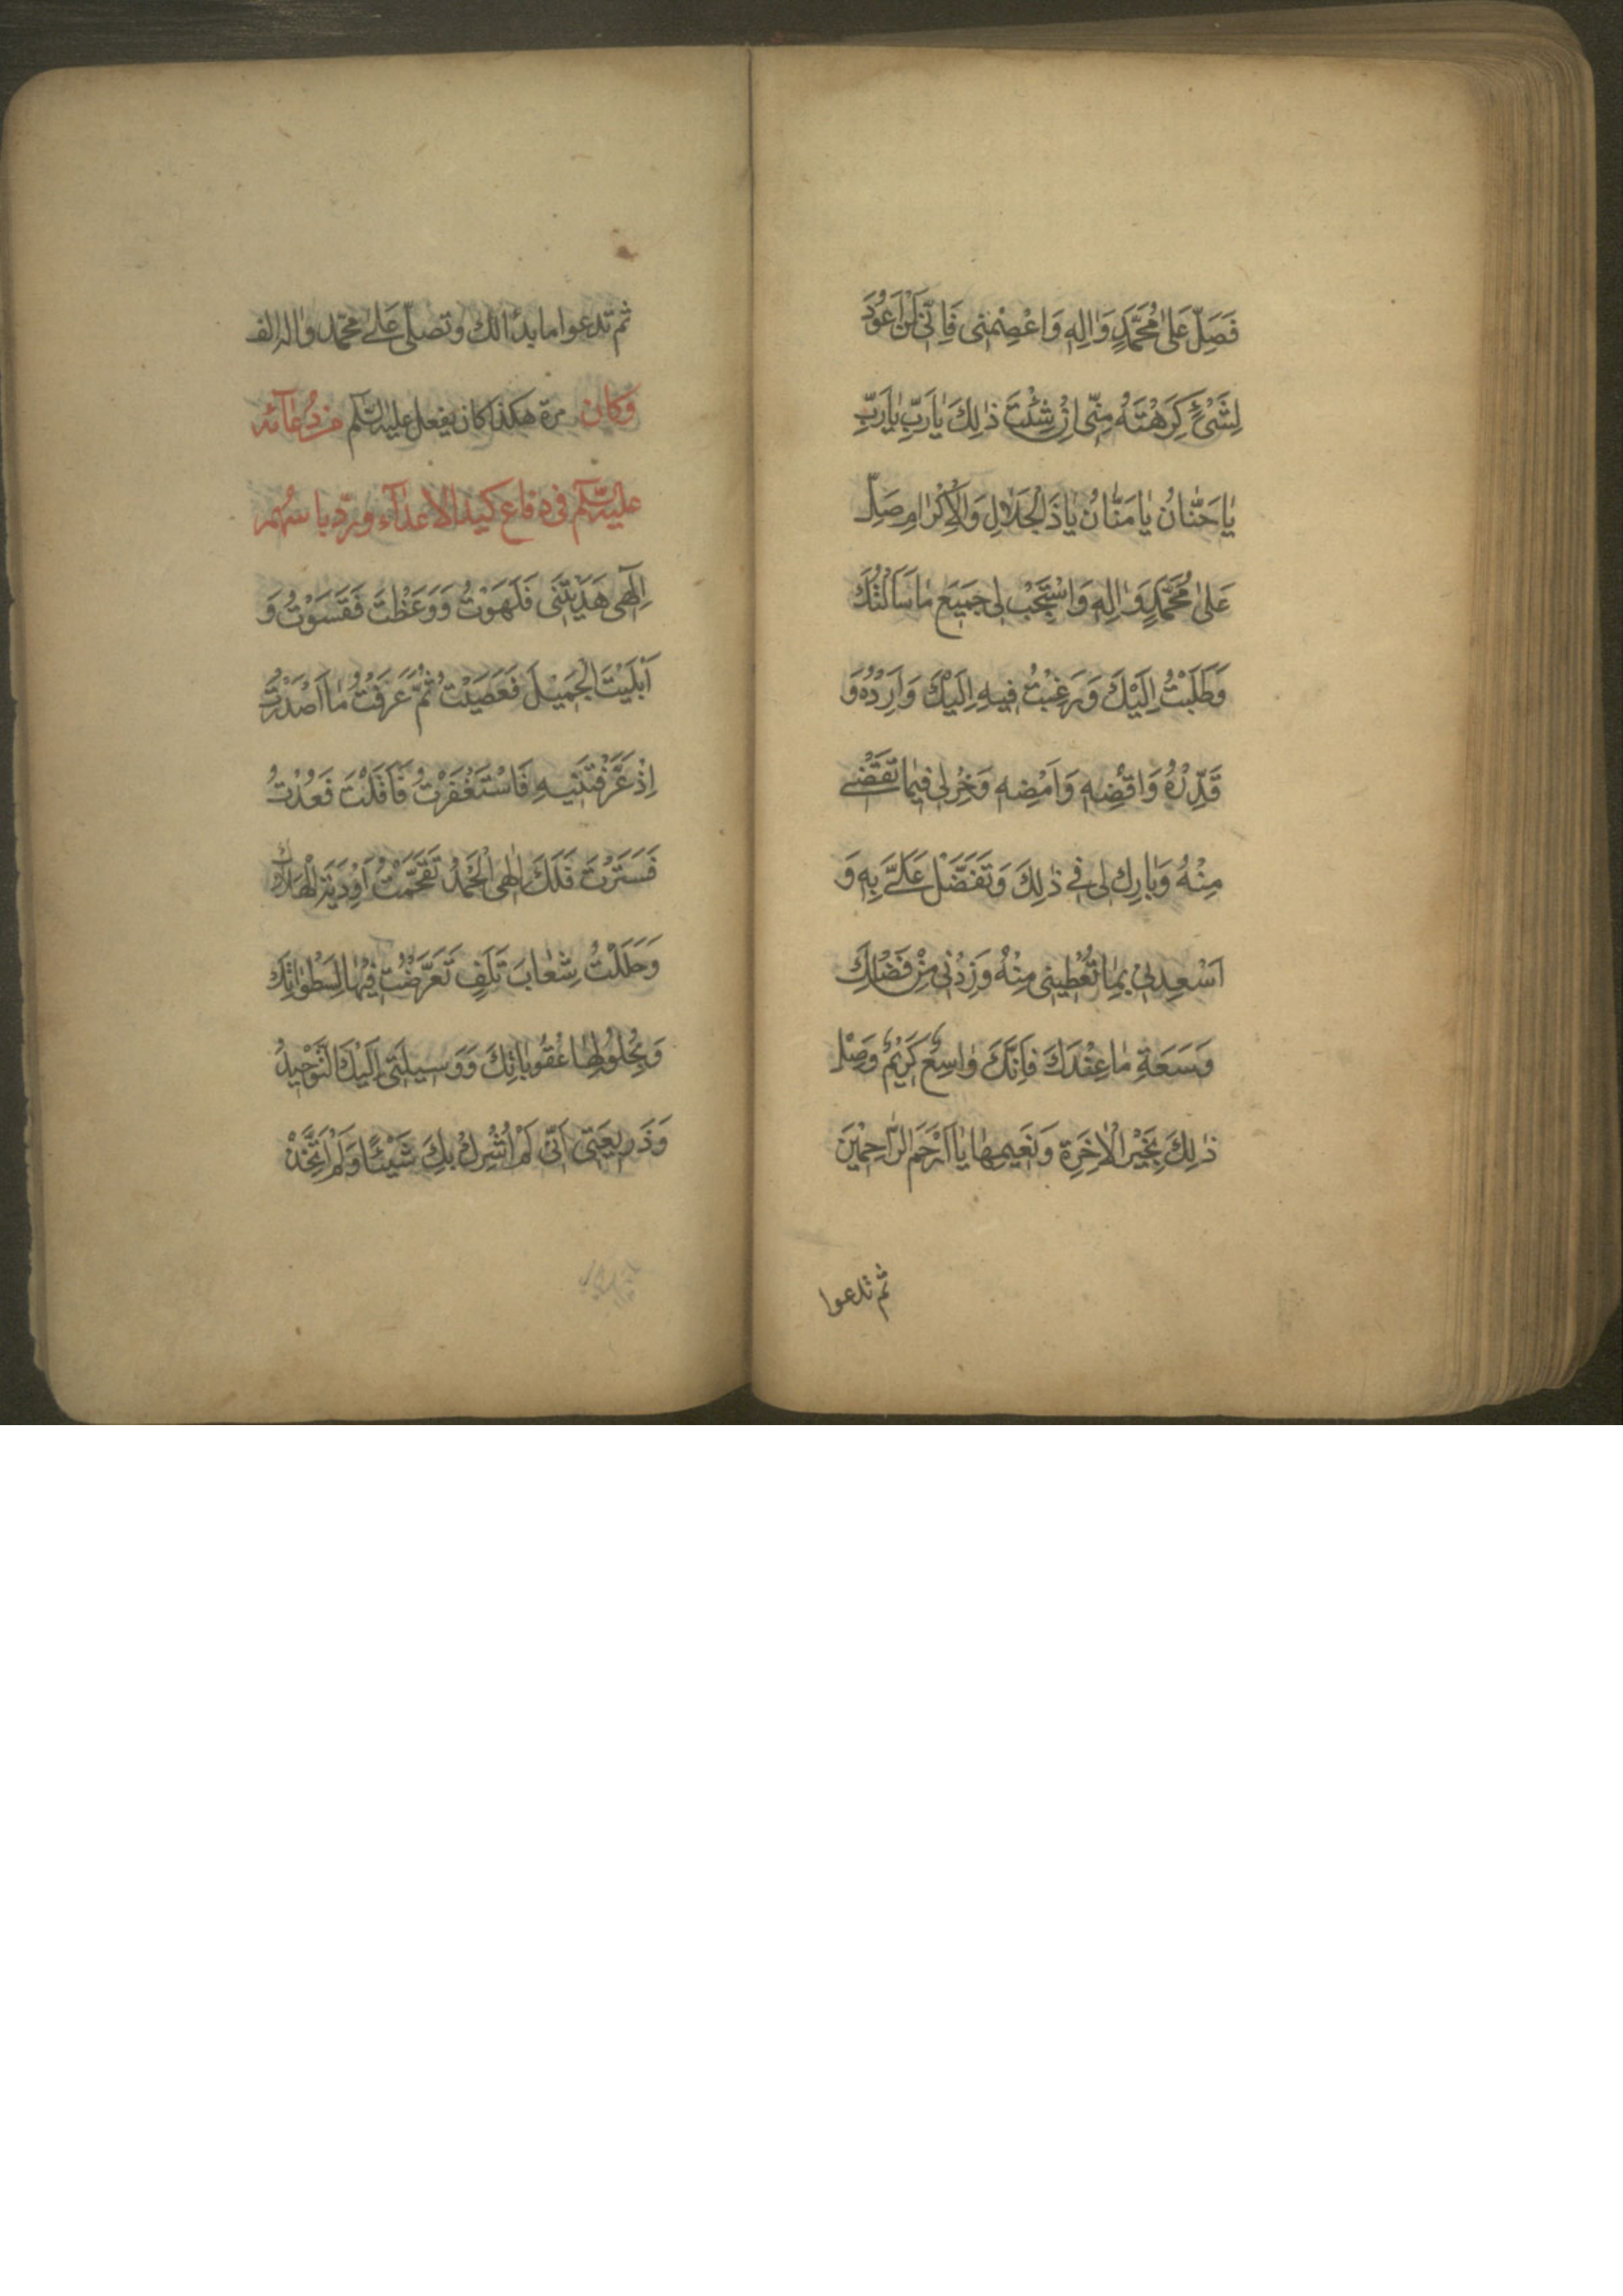 فَصَلِّ عَلٰى مُحَمَّدٍ وَاٰلِهِ وَاعْصِمْنى فَاِنّى لَنْ اَعُودَ
لِشَىْءٍ كَرِهْتَهُ مِنّى اِنْ شِئْتَ ذٰلِكَ يٰارَبِّ يٰارَبِّ
يٰاحَنّٰانُ يٰامَنّٰانُ يٰاذَالْجَلٰالِ وَالْاِكْرٰامِ صَلِّ
عَلٰى مُحَمَّدٍ وَاٰلِهِ وَاسْتَجِبْ لى جَميعَ مٰا سَاَلْتُكَ
وَطَلَبْتُ اِلَيْكَ وَرَغِبْتُ فيهِ اِلَيْكَ وَاَرِدْهُ وَ
قَدِّرْهُ وَاقْضِهِ وَاَمْضِهِ وَخِرْلى فيمٰا تَقْضى
مِنْهُ وَبٰارِك لى فى ذٰلِكَ وَتَفَضَّلْ عَلَىَّ بِهِ وَ
اَسْعِدْنى بِمٰا تُعْطينى مِنْهُ وَزِدْنى مِنْ فَضْلِكَ
وَسَعَةِ مٰا عِنْدَكَ فَاِنَّكَ وٰاسِعٌ كَريمٌ وَصِلْ
ذٰلِكَ بِخَيْرِ الْاٰخِرَةِ وَنَعيمِهٰا يٰااَرْحَمَ الرّٰاحِمينَ
ثم تدعوا
ثم تدعوا ما بدأ لك وتصلّى على محمّد واٰله الف
وَكان مرة هكذا كان يفعل عليه السّلم من دُعآئه
عليه السّلم فى دفاع كيد الاعدٰآء وردّ باسهم
اِلٰهى هَدَيْتَنى فَلَهَوْتُ وَوَعَظْتَ فَقَسَوْتُ وَ
اَبْلَيْتَ الْجَميلَ فَعَصَيْتُ ثُمَّ عَرَفْتُ مٰا اَصْدَرْتَ
اِذْ عَرَّفْتَنيهِ فَاسْتَغْفَرْتُ فَاَقَلْتَ فَعُدْتُ
فَسَتَرْتَ فَلَكَ اِلٰهى الْحَمْدُ تَقَحَّمْتُ اَوْدِيَةَ الْهَلاكِ
وَحَلَلْتُ شِعٰابَ تَلَفٍ تَعَرَّضْتُ فيهٰا لِسَطَوٰاتِكَ
وَبِحُلولِهٰا عُقُوبٰاتِكَ وَوَسيلَتى اِلَيْكَ التَّوْحيدُ
وَذَريعَتى اَنّى لَمْ اُشْرِكْ بِكَ شَيْئًا وَلَمْ اَتَّخِذْ